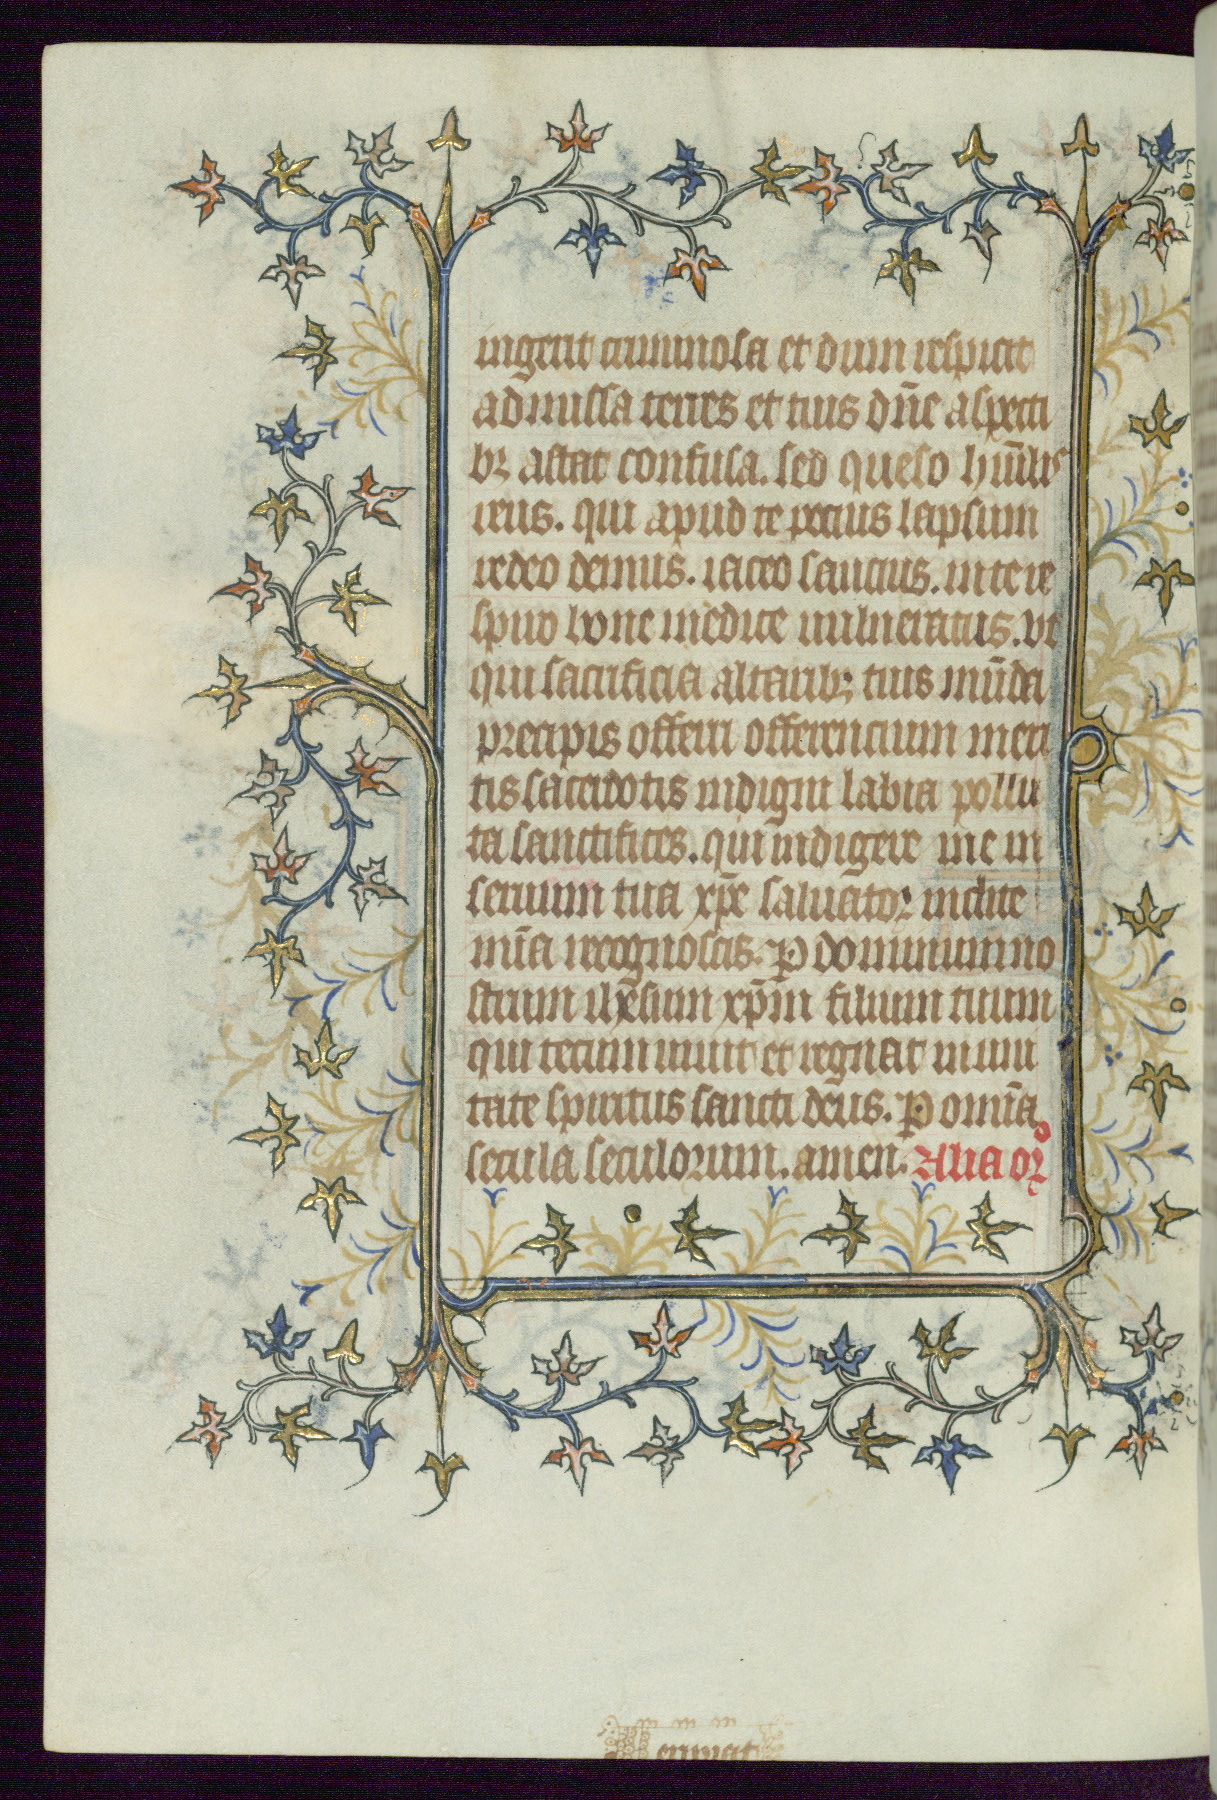 ingerit criminosa et dum respicit
admissa terres et tuis dn̄e aspecti
bꝫ astat confusa. sed queso hūilis
reus. qui apud te pecius lapsum
redeo demus. iaceo saucius. in te re
spuo bone medice uulneratus. vt
qui sacrificia altaribꝫ tuis mūda
precipis offerri offerencium meri
tis sacerdotis indigni labia pollu
ta sanctifices. qui indigere me in
seruum tua xp̄e saluator inclite
mīa recognoscis. P dominum no
strum ih̄esum xp̄m filium tuum
qui tecum uiuit et regnat in uni
tate spiritus sancti deus. P omīa
secula seculorum. amen. Alia or̄o